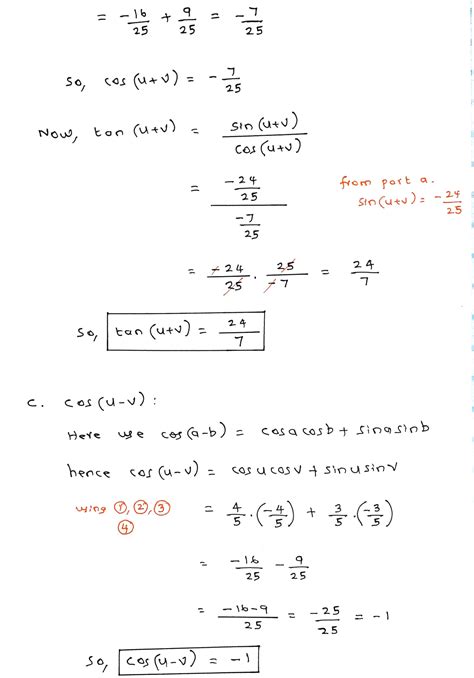 = -16/25 + 9/25 = -7/25
So, cos(u+v) = -7/25
Now, tan(u+v) = sin(u+v)/cos(u+v)
= (-24/25)/(-7/25)
from part a.
sin(u+v) = -24/25
= -24/25 . 25/-7 = 24/7
So, tan(u+v) = 24/7
c. cos(u-v) :
Here use cos(a-b) = cosa cosb + sina sinb
hence cos(u-v) = cosu cosv + sinu sinv
using ①, ②, ③
④
= 4/5 . (-4/5) + 3/5 . (-3/5)
= -16/25 - 9/25
= -16-9/25 = -25/25 = -1
So, cos(u-v) = -1